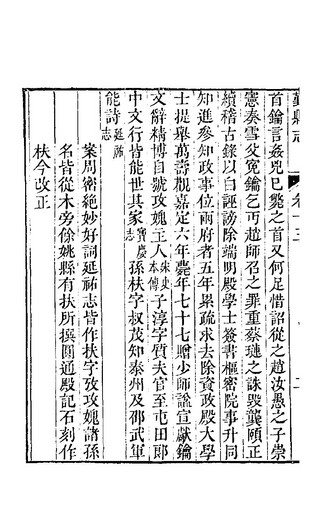 鄞縣志 卷十三
首鑰言姦兇已斃之首又何足惜詔從之趙汝愚之子崇
憲奏雪父寃鑰乞丐趙師召之罪重蔡璉之誅毀龔頤正
續稽古錄以白誣謗除端明殿學士簽書樞密院事升同
知進參知政事位兩府者五年累疏求去除資政殿大學
士提舉萬壽觀嘉定六年薨年七十七贈少師謚宣獻鑰
文辭精博自號攻媿主人宋史本傳子淳字質夫官至屯田郎
中文行皆能世其家寶慶志孫杕字叔茂知泰州及邵武軍
能詩延祐志
案周密絶妙好詞延祐志皆作扶字攷攻媿諸孫
名皆從木旁餘姚縣有杕所撰圓通殿記石刻作
杕今改正